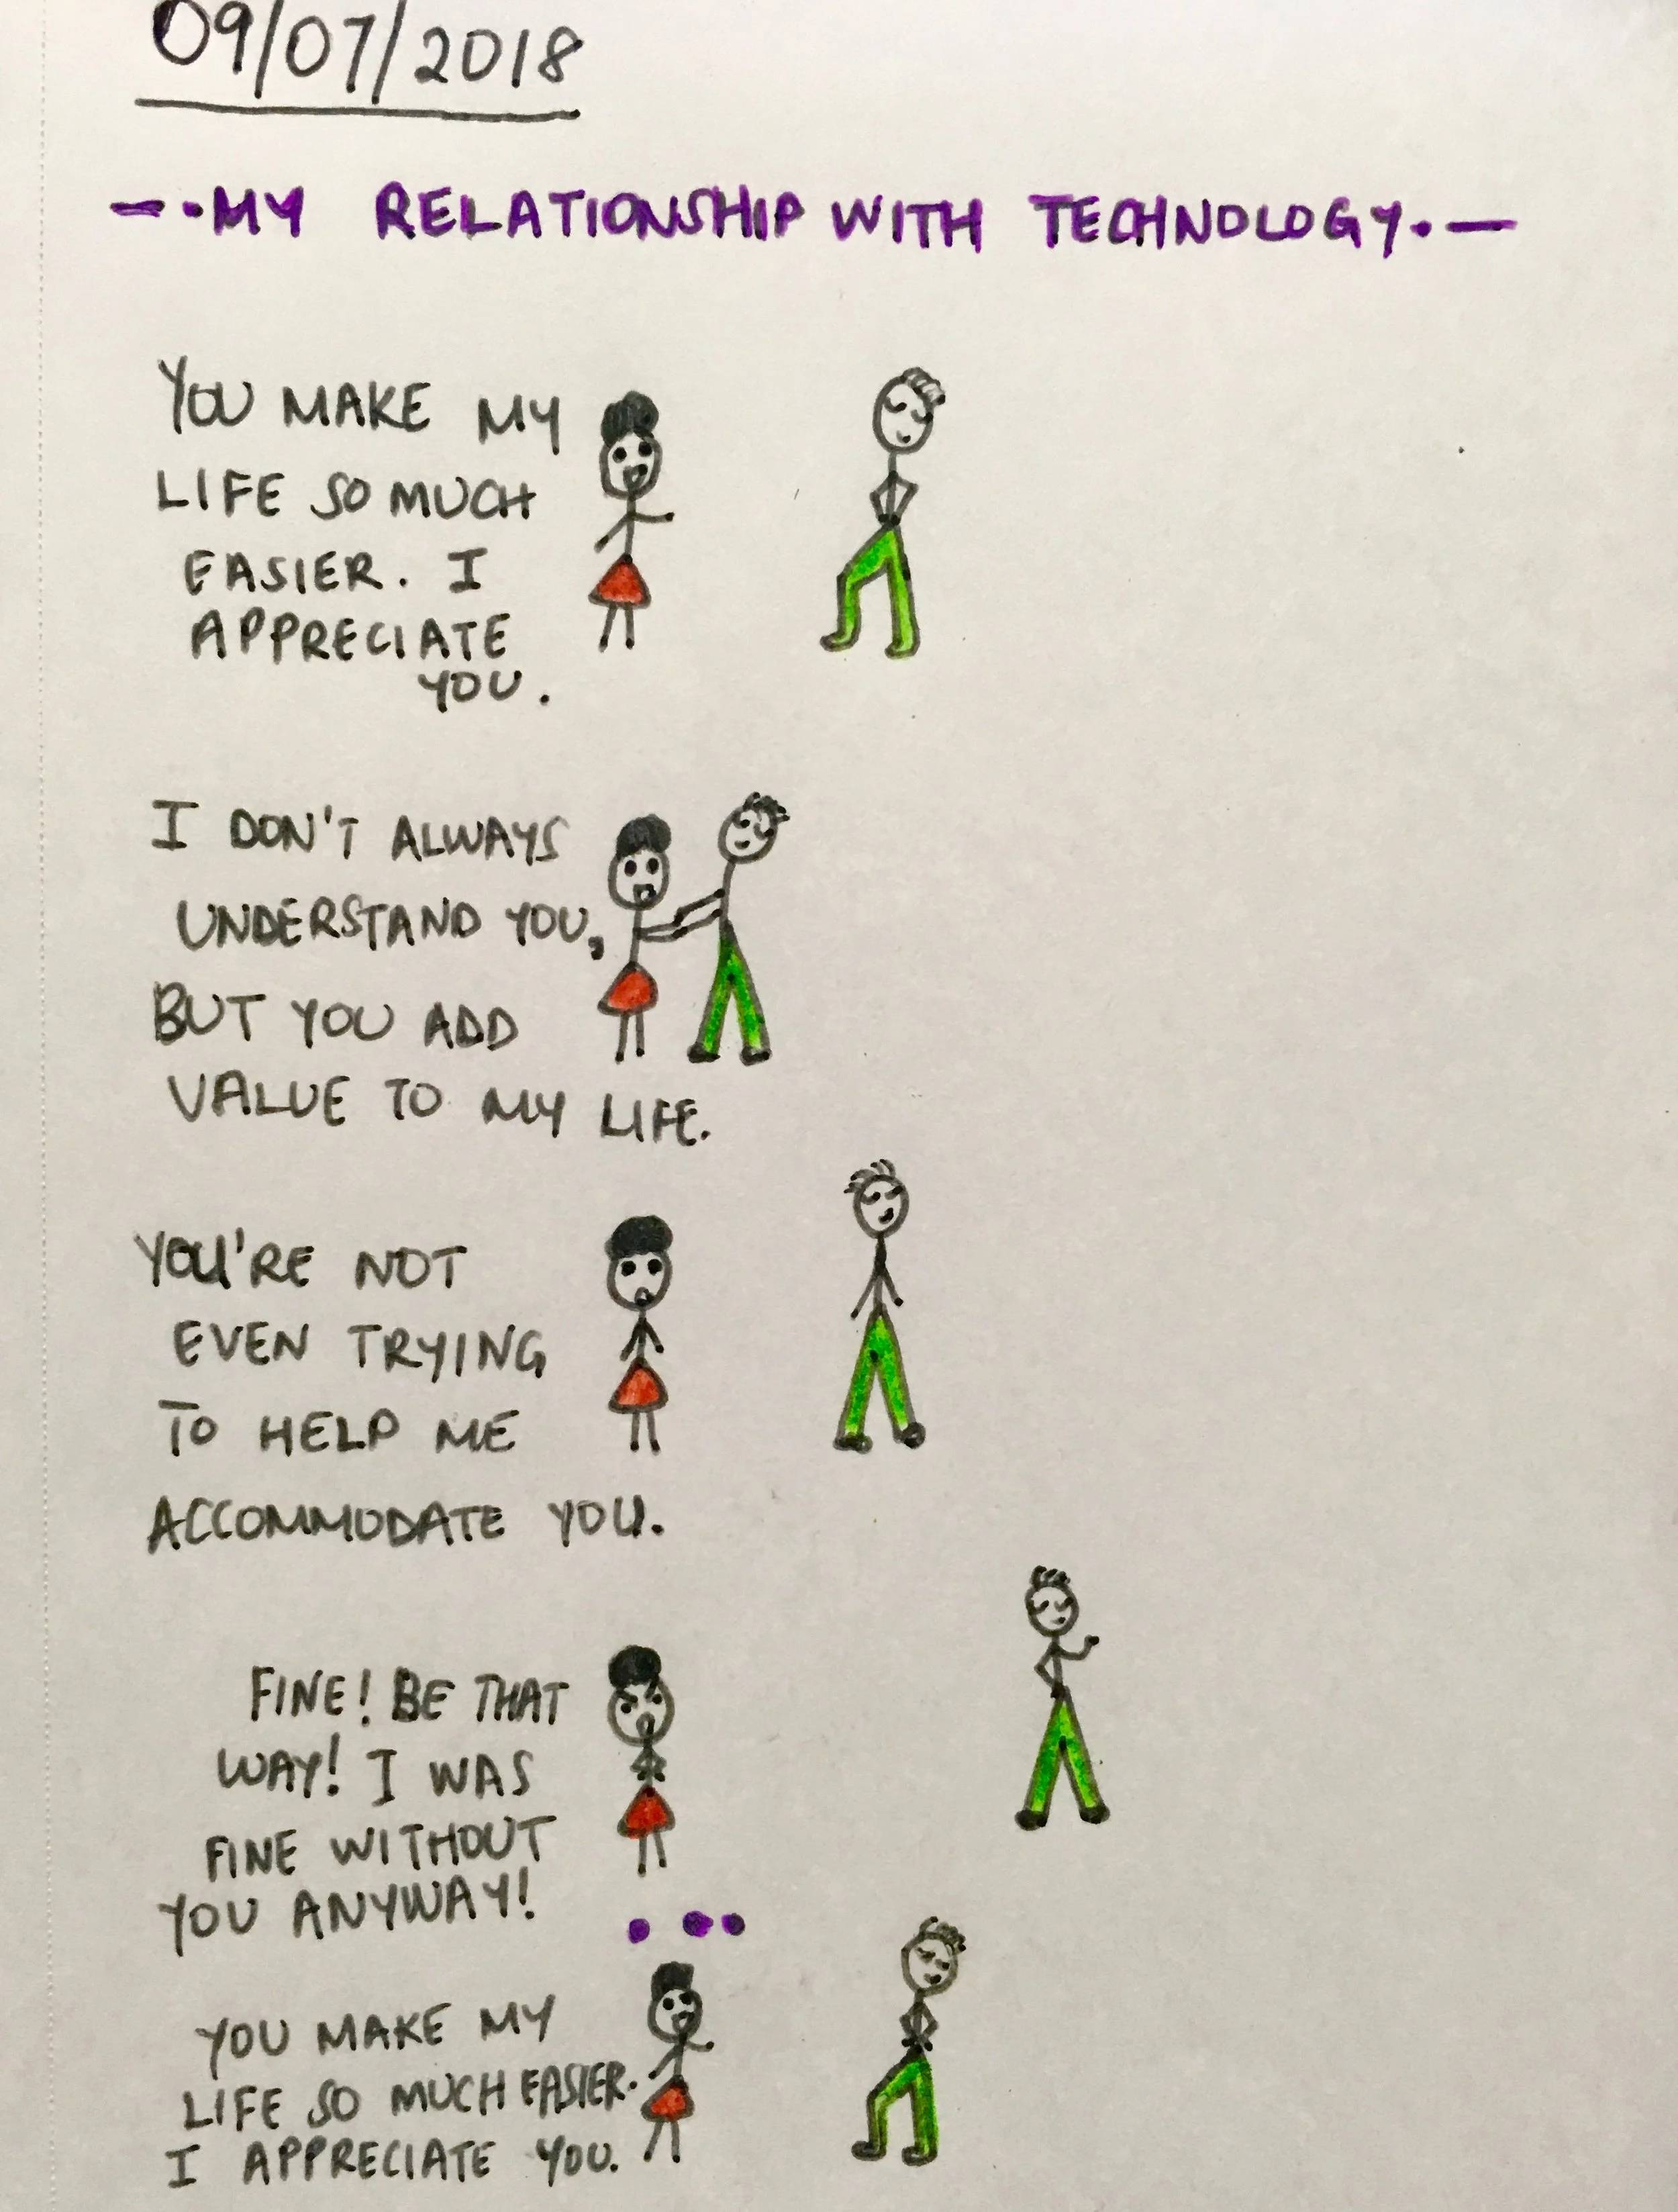 09/07/2018
—·MY RELATIONSHIP WITH TECHNOLOGY.—
YOU MAKE MY
LIFE SO MUCH
EASIER. I
APPRECIATE
YOU.
I DON'T ALWAYS
UNDERSTAND YOU,
BUT YOU ADD
VALUE TO MY LIFE.
YOU'RE NOT
EVEN TRYING
TO HELP ME
ACCOMMODATE YOU.
FINE! BE THAT
WAY! I WAS
FINE WITHOUT
YOU ANYWAY!
...
YOU MAKE MY
LIFE SO MUCH EASIER.
I APPRECIATE YOU.